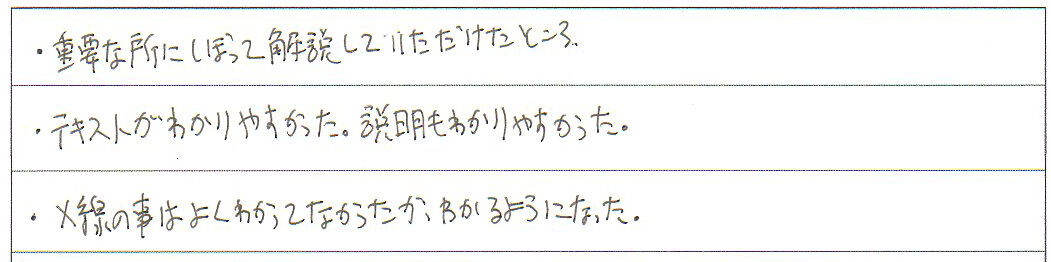 ・重要な所にしぼって解説していただけたところ。
・テキストがわかりやすかった。説明もわかりやすかった。
・X線の事はよくわかってなかったが、わかるようになった。